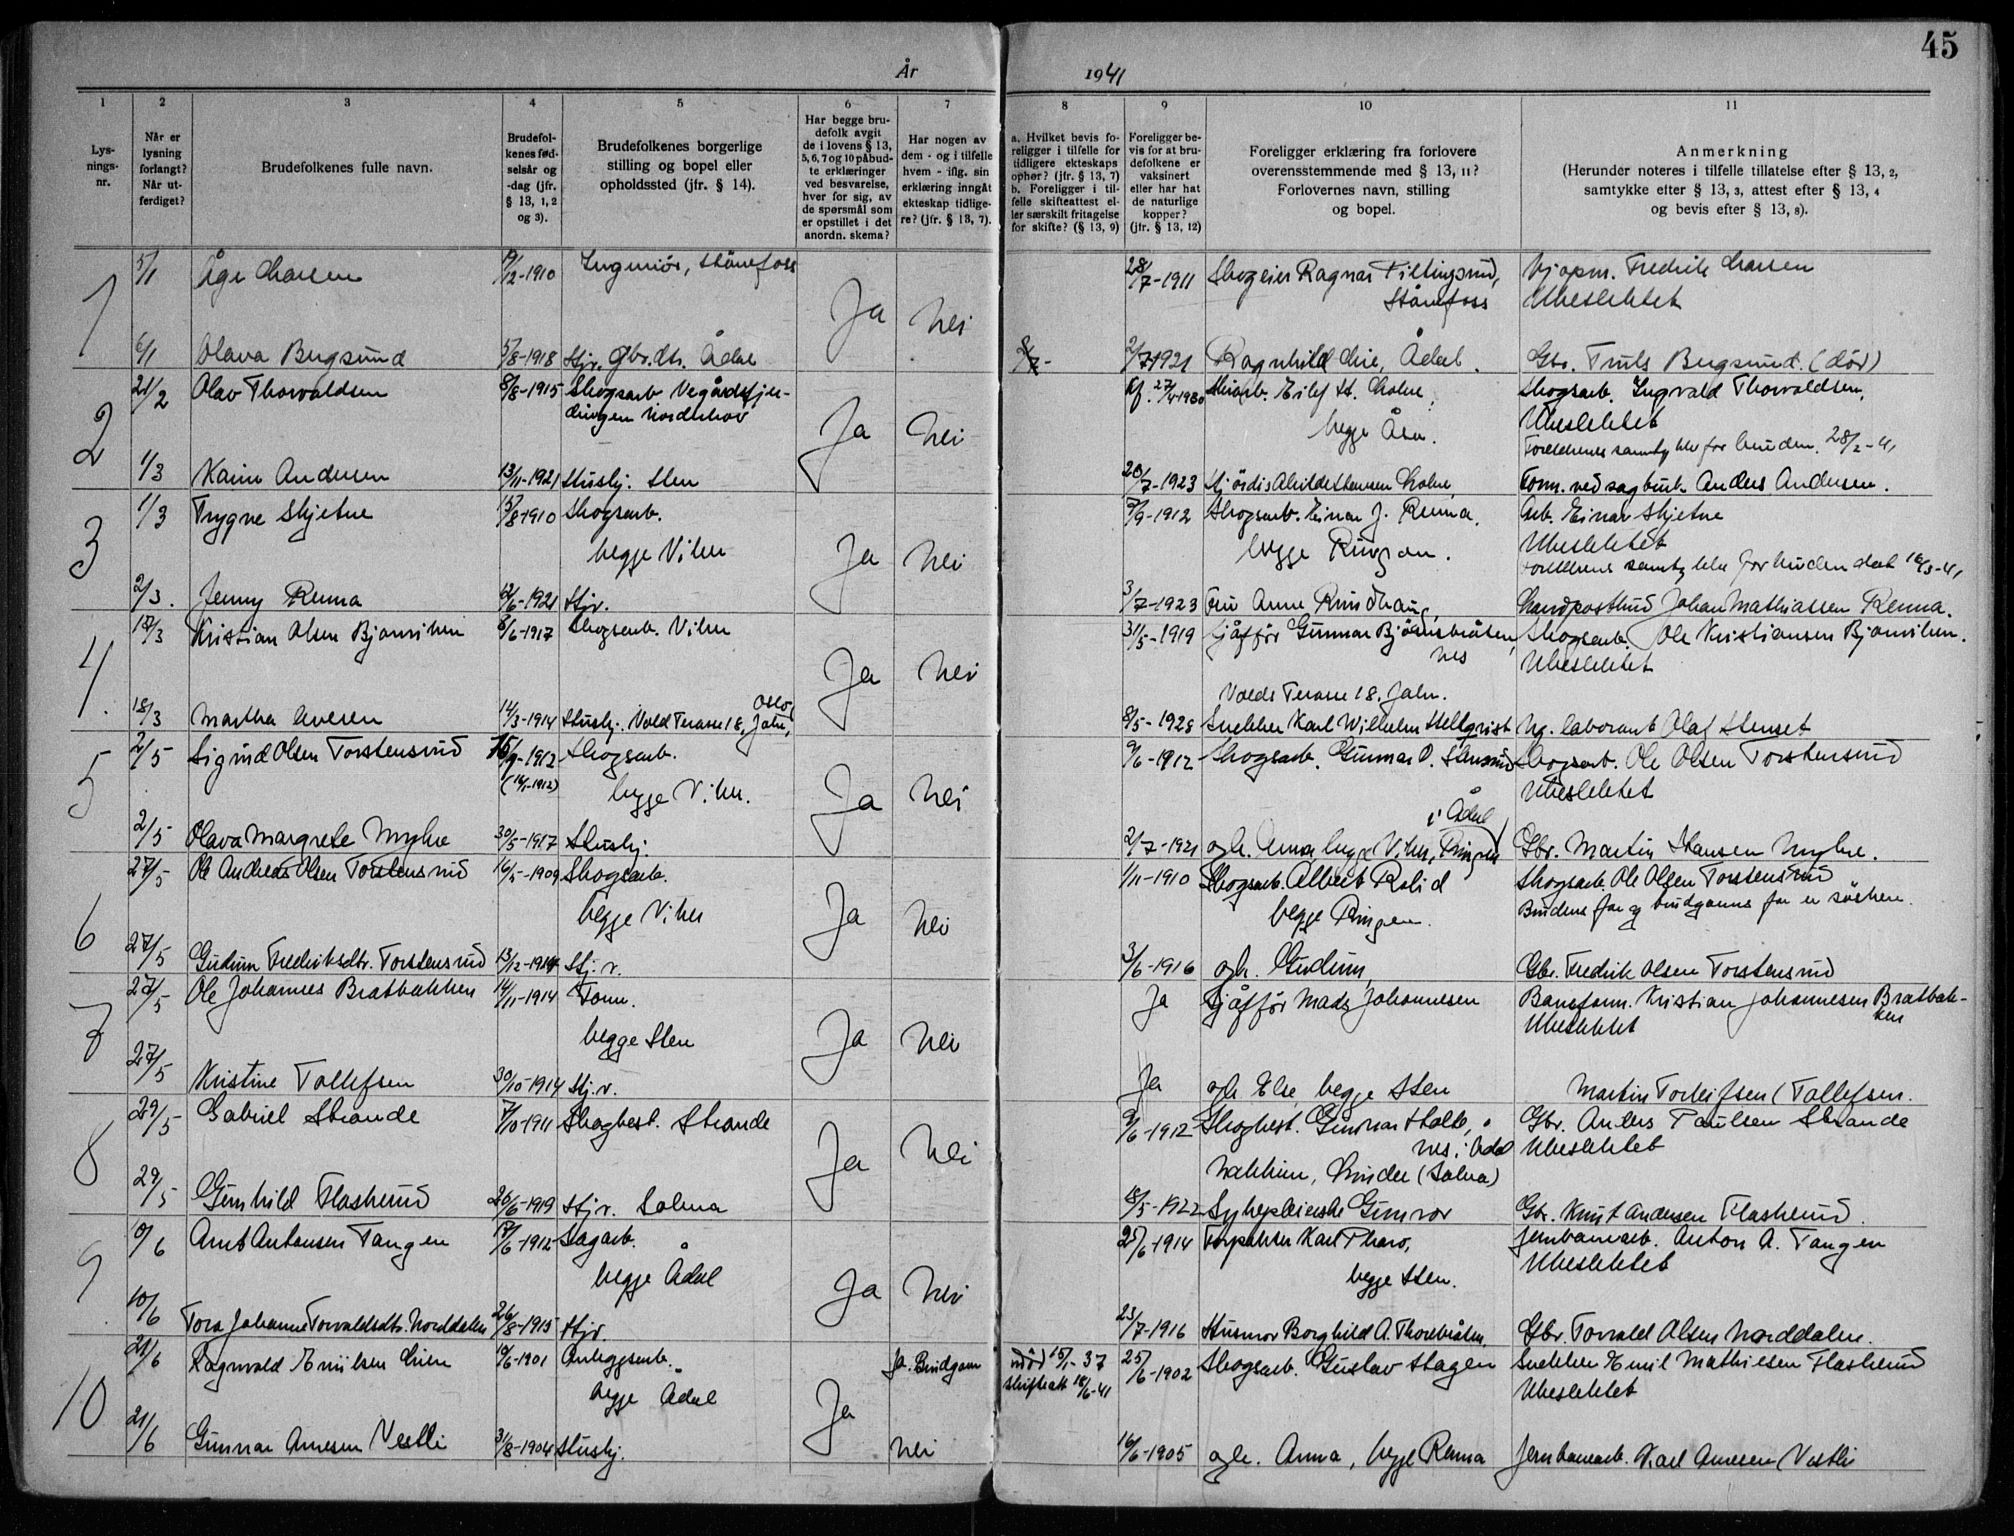 45
År 1941
1 2 3 4 5 6 7 8 9 10 11
Lysningsnr.
Når er lysning forlangt? Når utferdiget?
Brudefolkenes fulle navn.
Brudefolkenes fødselsår og -dag (jfr. § 13, 1, 2 og 3).
Brudefolkenes borgerlige stilling og bopel eller opholdssted (jfr. § 14).
Har begge brudefolk avgit de i lovens § 13, 5, 6, 7 og 10 påbudte erklæringer ved besvarelse, hver for sig, av de spørsmål som er opstillet i det anordn. skema?
Har nogen av dem - og i tilfelle hvem - iflg. sin erklæring inngåt ekteskap tidligere? (jfr. § 13, 7).
a. Hvilket bevis foreligger i tilfelle for tidligere ekteskaps ophør? (jfr. § 13, 7) b. Foreligger i tilfelle skifteattest eller særskilt fritagelse for skifte? (§ 13, 9)
Foreligger bevis for at brudefolkene er vaksinert eller har hat de naturlige kopper? (jfr. § 13, 12)
Foreligger erklæring fra forlovere overensstemmende med § 13, 11? Forlovernes navn, stilling og bopel.
Anmerkning (Herunder noteres i tilfelle tillatelse efter § 13, 2, samtykke efter § 13, 3, attest efter § 13, 4 og bevis efter § 13, 8).
1 5/1 Åge Larsen 19/12-1910 Ingeniør, Hønefoss Ja Nei 28/7-1911 Skogeier Ragnar Tiltingsrud, Hønefoss Kjøpm. Fredrik Larsen
Ubeslektet
6/1 Olava Bergsund 5/8-1918 Hjv. Gbr.dtr. Ådal 2/7-1921 Ragnhild Lie, Ådal. Gbr. Truls Bergsund. (død)
2 21/2 Olav Thorvaldsen 8/8-1915 Skogsarb. Vegårdsfjerdingen Norderhov Ja Nei 27/4-1930 Eilef H. Holne, begge Åsa. Skogsarb. Ingvald Thorvaldsen.
Ubeslektet
Foreldrenes samtykke for bruden. 28/2-41
1/3 Karin Andersen 13/11-1921 Hushj. Hen 20/7-1923 Hjørdis Alhilde Hansen Holne, Form. ved sagbruk Anders Andersen.
3 1/3 Trygve Skjetne 15/8-1910 Skogsarb. begge Viker Ja Nei 7/9-1912 Skogsarb. Einar J. Renna. begge Ringmon. Arb. Einar Skjetne
Ubeslektet
Foreldrenes samtykke for bruden dat 16/3-41
2/3. Jenny Renna 12/6-1921 Hjv. 3/7-1923 Fru Anne Rundhaug, Landpostbud Johan Mathiassen Renna.
4. 17/3 Kristian Olsen Bjonviken 8/6-1917 Skogsarb. Viker Ja Nei 31/5-1919 Sjåfför Gunnar Bjørnebråten, Nes Skogsarb. Ole Kristiansen Bjonviken.
Ubeslektet
Volds Terasse 18. Jahr.
18/3 Martha Iversen 14/3-1914 Hushj. Vold Terasse 18, Oslo 8/5-1928 Snekker Karl Wilhelm Hellqvist Ug. laborant Olaf Stenset
5 2/5 Sigurd Olsen Torstensrud 15/9-1912 (14/1-1912) Skogsarb. begge Viker. Ja Nei 9/6-1912 Skogsarb. Gunnar O. Stensrud Skogsarb. Ole Olsen Torstensrud
Ubeslektet
i Ådal
2/5 Olava Margrete Myhre 30/5-1917 Hushj. 2/7-1921 og h. Anna begge Viker, Ringen Gbr. Martin Hansen Myhre.
6 27/5 Ole Andreas Olsen Torstensrud 16/5-1909 Skogsarb. begge Viker Ja Nei 1/11-1910 Skogsarb. Albert Rolid begge Ringen. Skogsarb. Ole Olsen Torstensrud
Brudens far og brudgoms far er søsken.
27/5 Gudrun Fredriksdtr. Torstensrud 13/12-1914 Hj.v. 3/6-1916 og h. Gudrun, Gbr. Fredrik Olsen Torstensrud
7 27/5 Ole Johannes Bratbakken 14/11-1914 Form. begge Hen Ja Nei Ja Sjåfför Mads Johannesen Baneform. Kristian Johannesen Bratbakken
Ubeslektet
27/5 Kristine Tollefsen 30/10-1914 Hj.v. Ja og h. Else, begge Hen Martin Torleifsen (Tollefsen.
8 29/5 Gabriel Strande 7/10-1911 Skogbest. Strande Ja Nei 9/6-1912 Skogbest. Gunnar Holte, Nes i Ådal Gbr. Anders Paulsen Strande
Ubeslektet
29/5 Gunhild Flaskerud 26/6-1919 Hj.v. Solna 18/5-1922 Sykepleierske Gunvor Gbr. Knut Andersen Flaskerud.
9 10/6 Arnt Antonsen Tangen 17/6-1912 Sagarb. begge Ådal Ja Nei 25/6-1914 Karl Thoro, begge Hen. Jernbanearb. Anton A. Tangen
Ubeslektet
10/6 Tora Johanne Torvaldsdtr. Norddalen 26/8-1915 Hjv. 23/7-1916 Husmor Borghild A. Thorebråten, Gbr. Torvald Olsen Norddalen.
10 21/6 Ragnvald Emilsen Lien 19/6-1901 Anleggsarb. begge Ådal Ja Ja. Brudgom død 15/1-37 skifteatt 18/6-41 25/6-1902 Skogsarb. Gustav Hagen Snekker Emil Mathiesen Flaskerud
Ubeslektet
21/6 Gunnar Arnesen Vestli 31/8-1904 Hushj. Nei 16/6-1905 og h. Anna, begge Renna Jernbanearb. Karl Arnesen Vestli